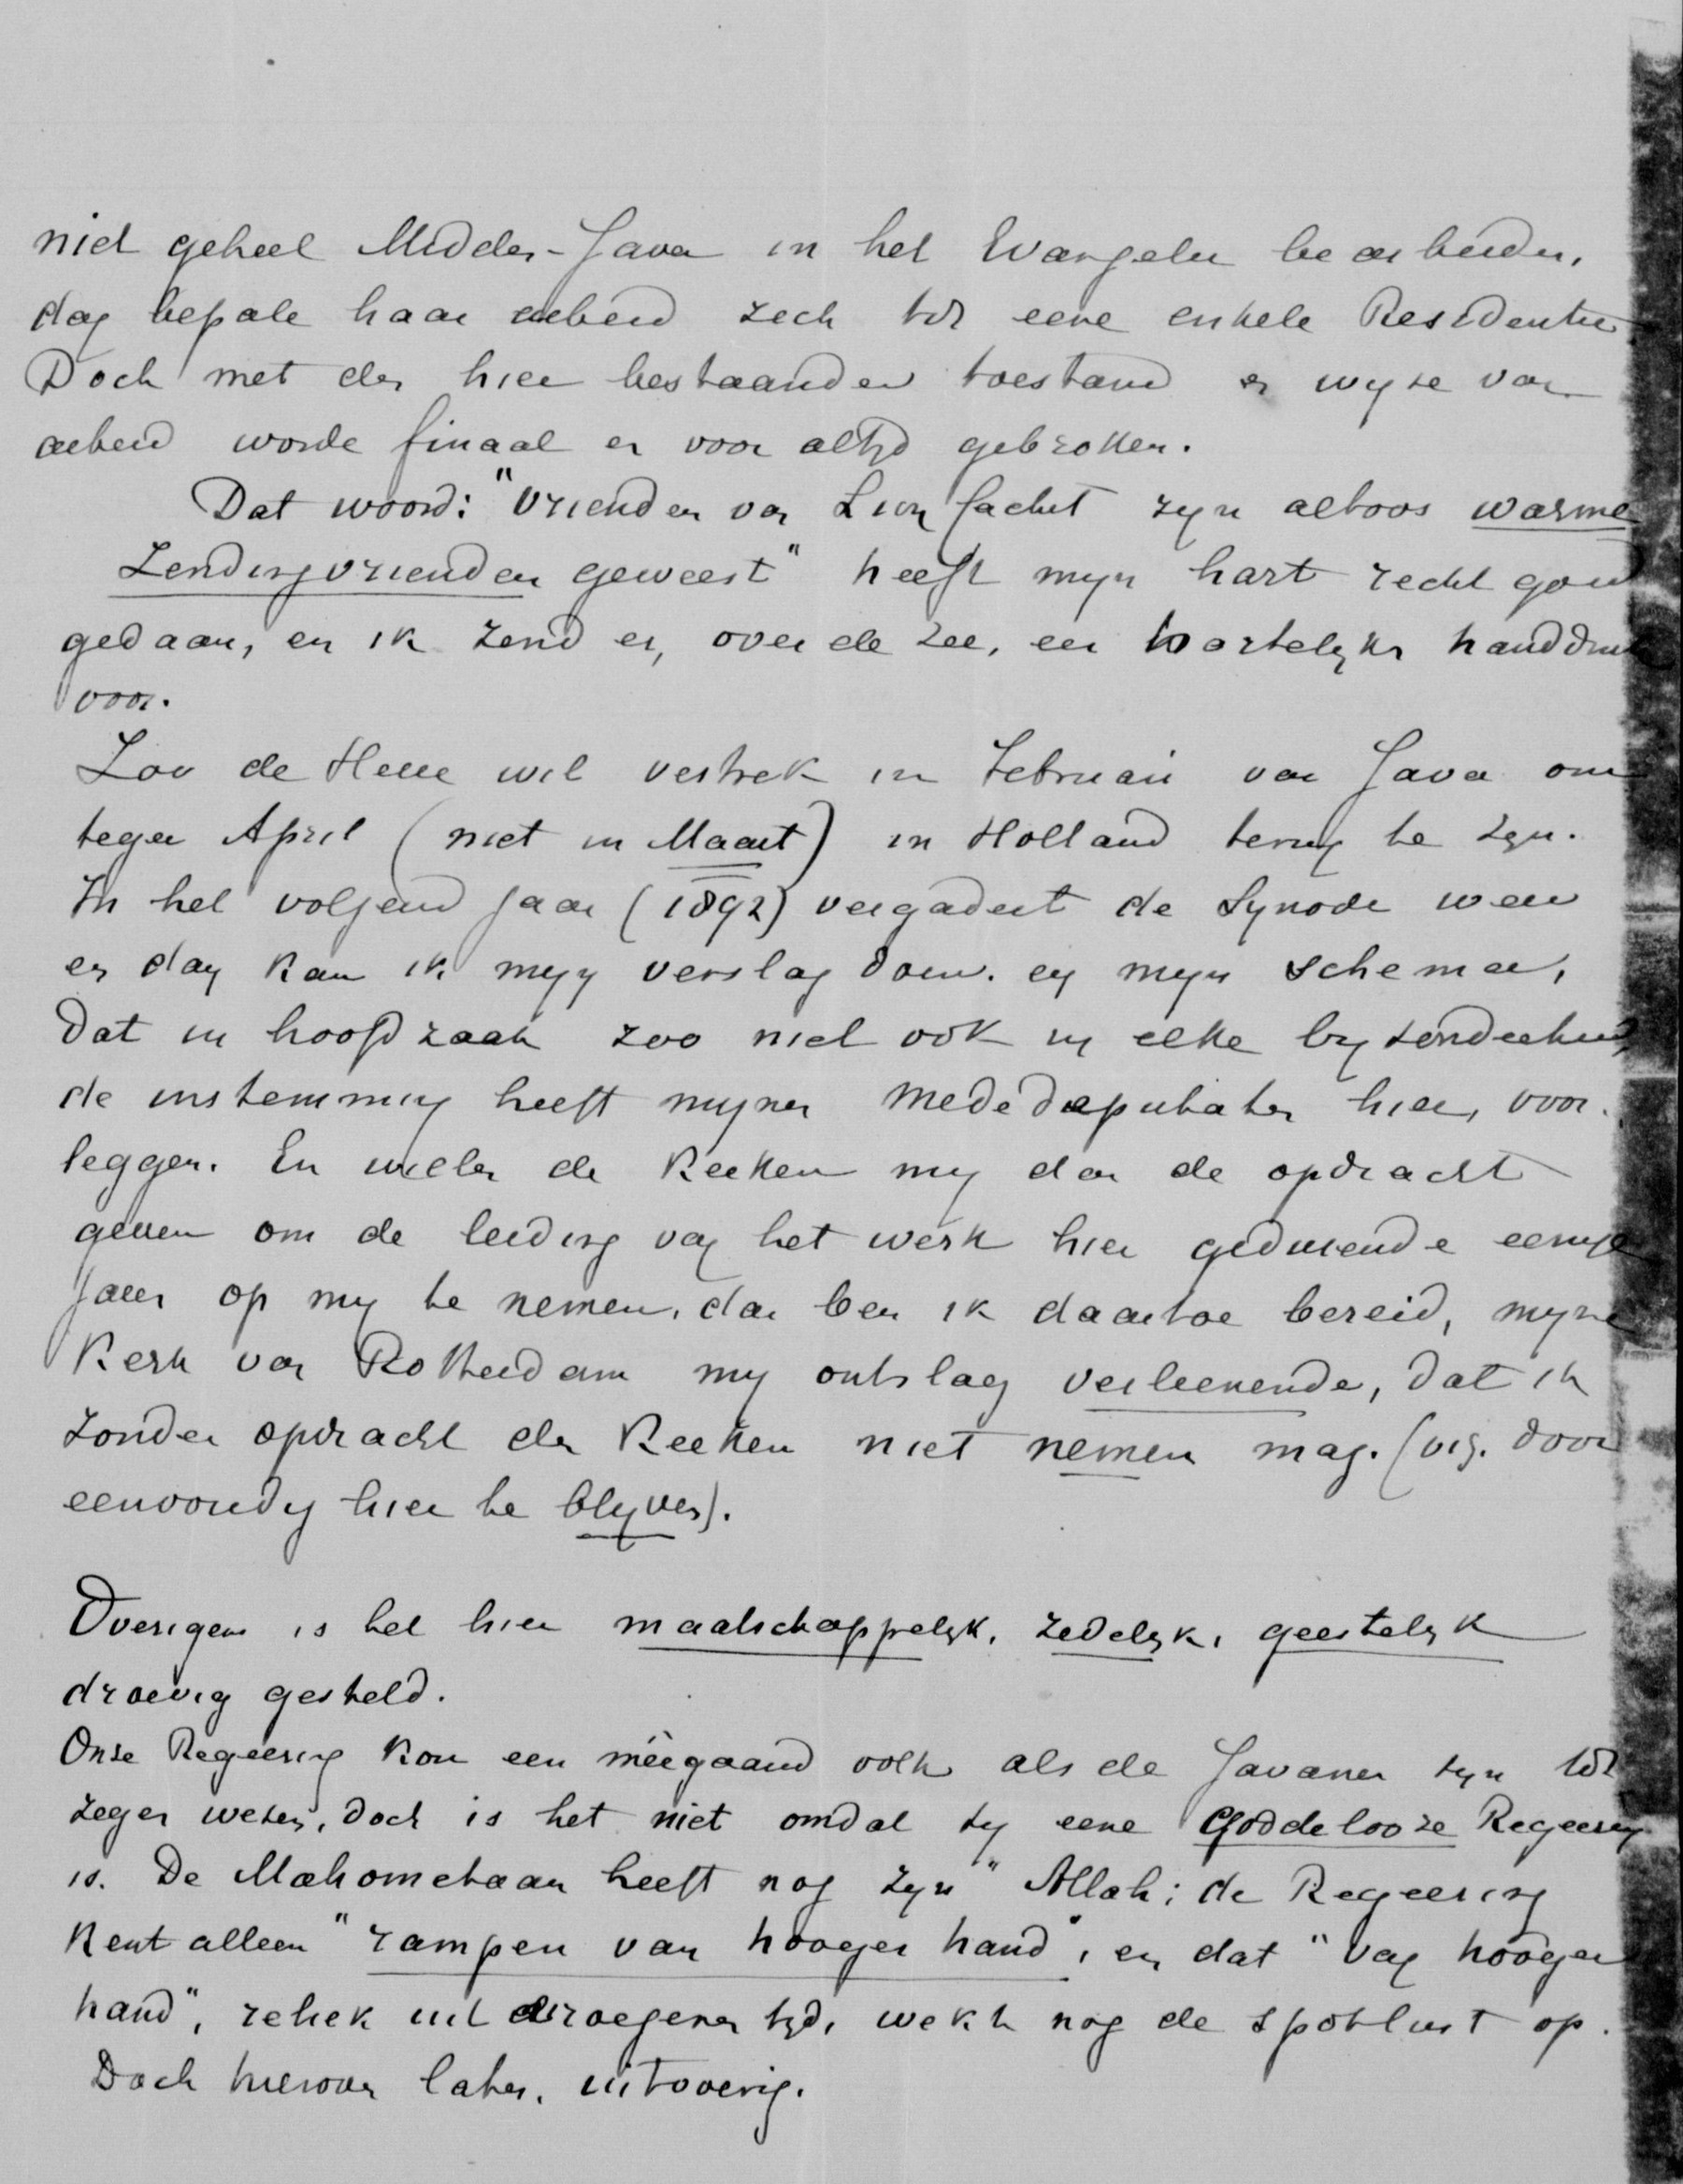 niet geheel Midden-Java in het Evangelie bearbeiden,
dan bepale haar arbeid zich tot eene enkele Residentie
Doch met den hier bestaanden toestand en wyze van
arbeid worde finaal en voor altyd gebroken.
Dat woord: "Vrienden van Lion Cachet zyn altoos warme
Zendingvrienden geweest" heeft myn hart recht goed
gedaan, en ik zend er, over de zee, een hartelyken handdruk
voor.
Zoo de Heere wil vertrek in Februari van Java om
tegen April (niet in Maart) in Holland terug te zyn.
In het volgend jaar (1892) vergadert de Synode weer
en dan kan ik myn verslag doen. en myn schema,
dat in hoofdzaak zoo niet ook in elke byzonderheid,
de instemming heeft myner mededeputaten hier, voor-
leggen. En willen de Kerken my dan de opdracht
geven om de leiding van het werk hier gedurende eenige
jaren op my te nemen, dan ben ik daartoe bereid, myne
Kerk van Rotterdam my ontslag verleenende, dat ik
zonder opdracht der Kerken niet nemen mag. (vig. door
eenvoudig hier te blyven).
Overigens is het hier maatschappelyk, zedelyk, geestelyk
droevig gesteld.
Onze Regeering kon een méegaand volk als de Javanen zyn tot
zegen wezen, doch is het niet omdat zy eene Goddelooze Regeering
is. De Mahometaan heeft nog zyn "Allah; de Regeering
kent alleen "rampen van hooger hand", en dat "van hooger
hand", reliek uit vroegeren tyd, wekt nog de spotlust op.
Doch hierover later, uitvoerig.